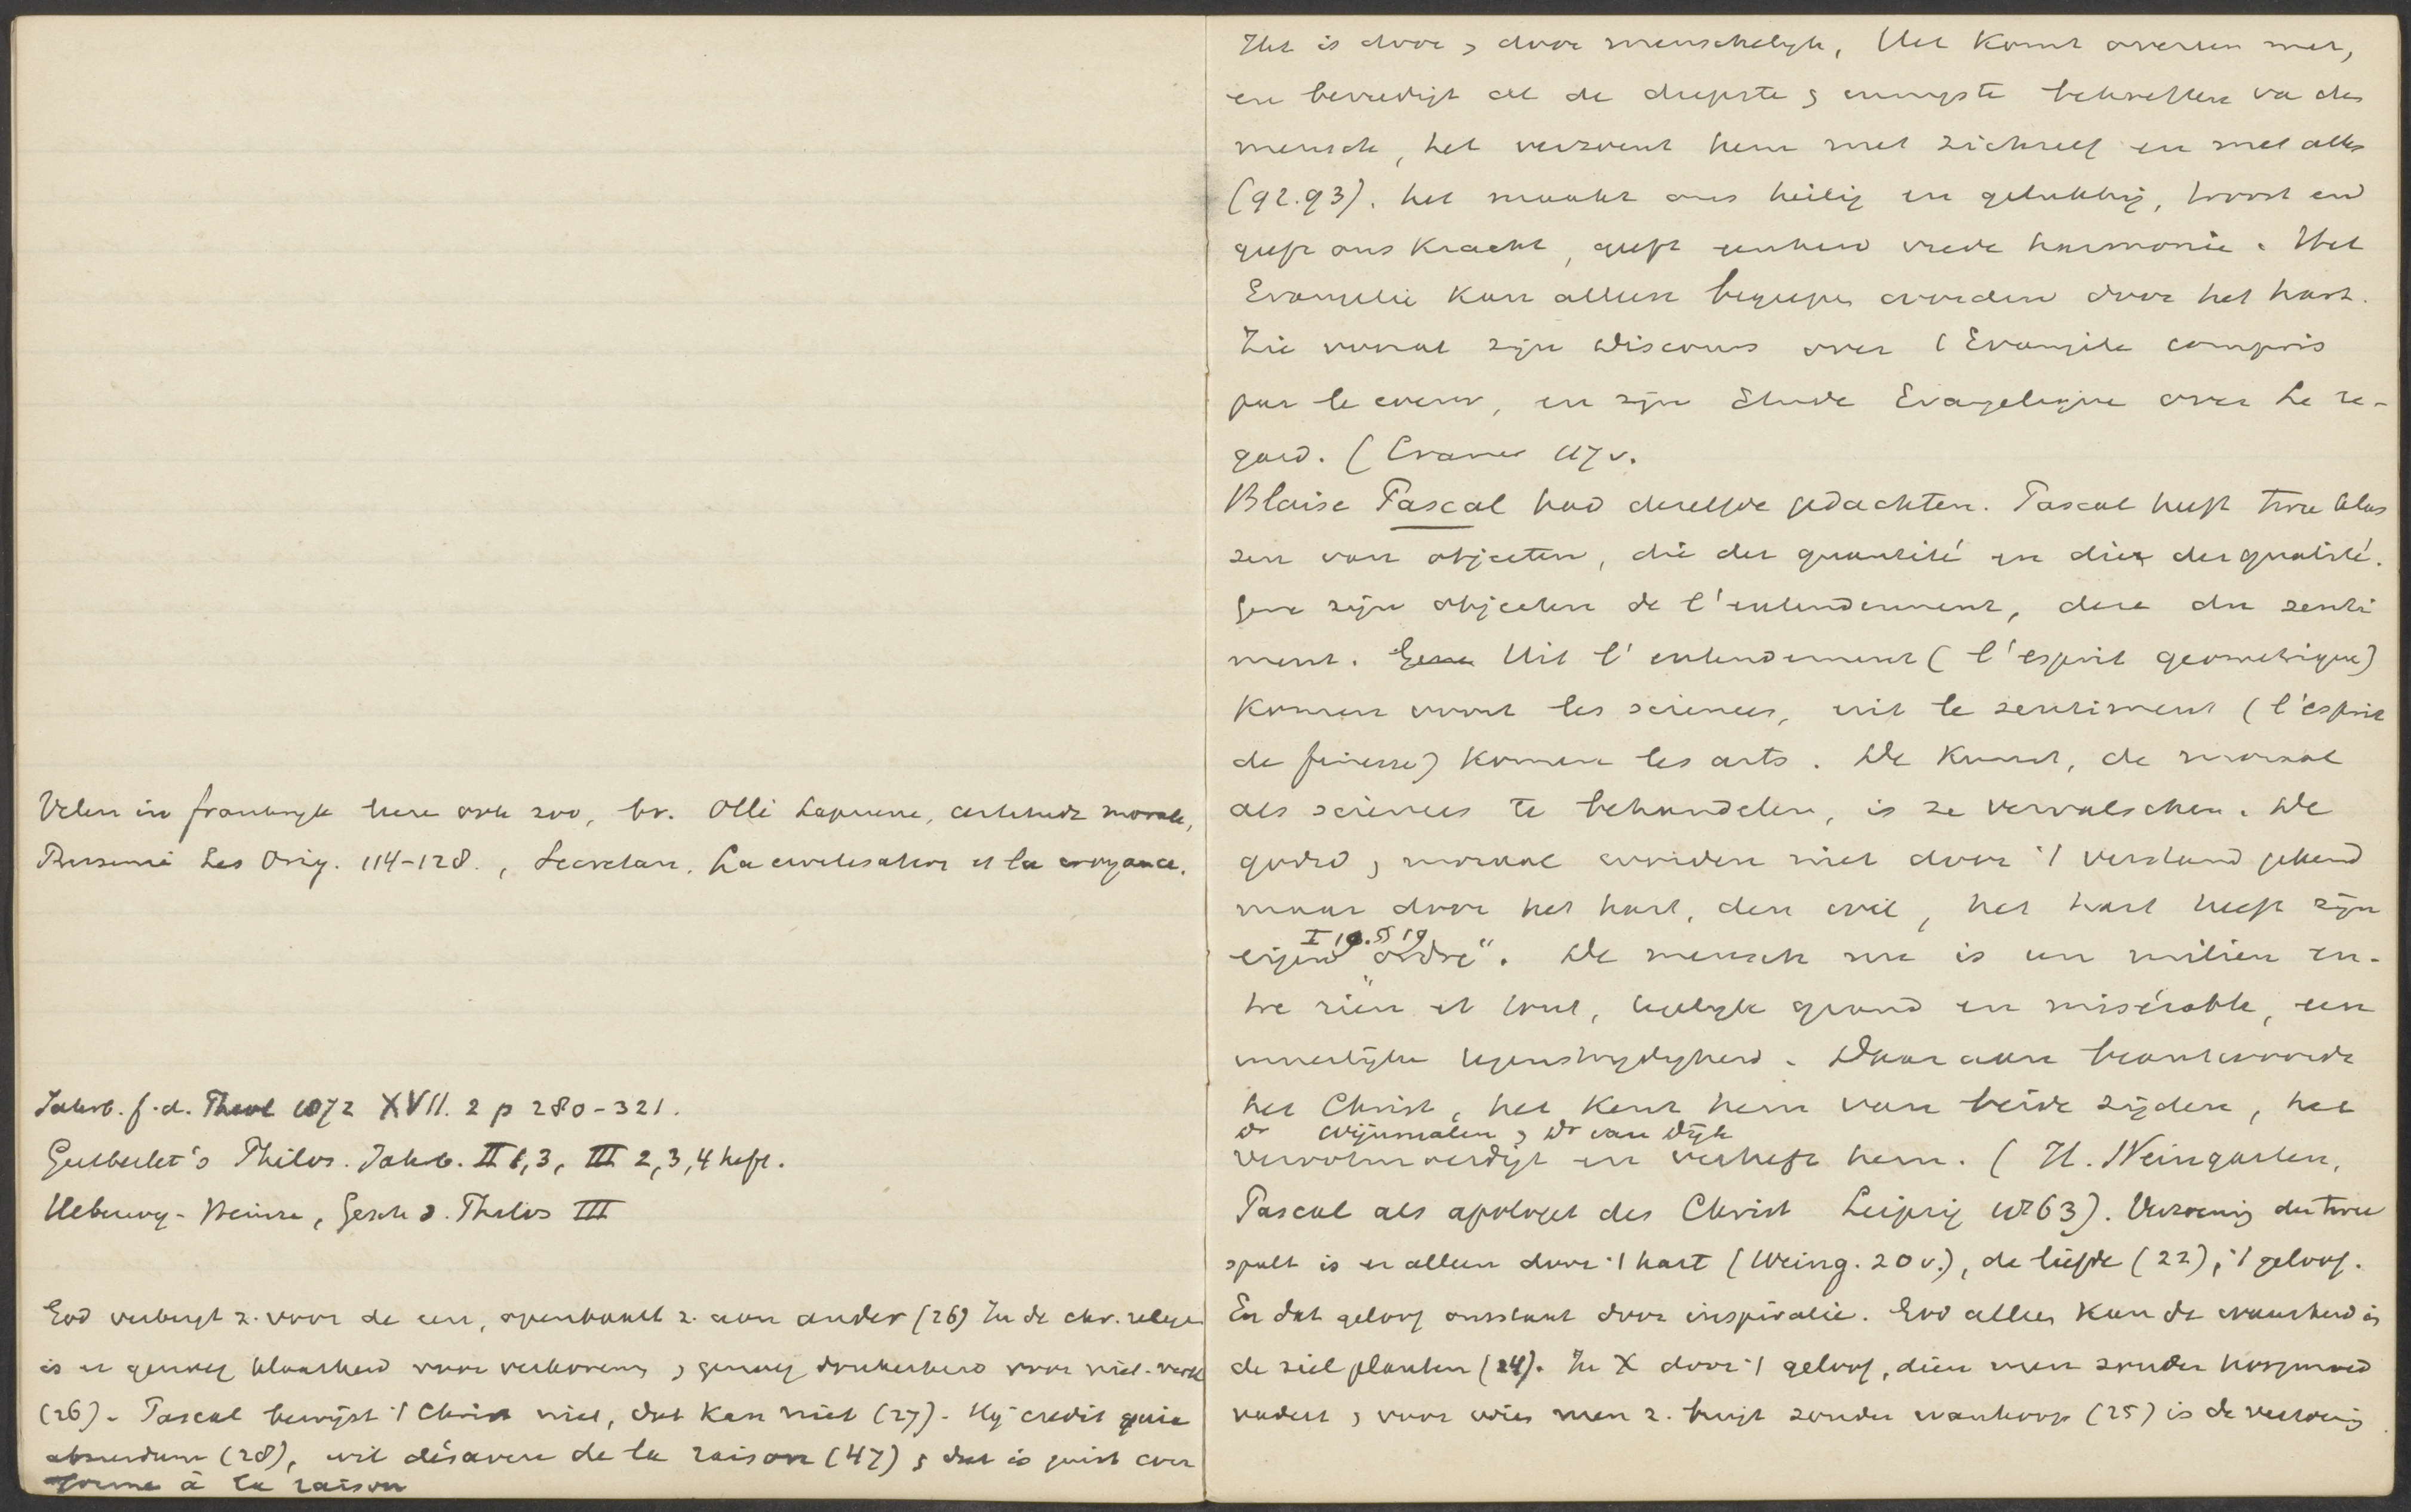 Velen in frankryk leeren ook zoo, bv. Ollé Laprune, certitude morale,
Pressensé Les Orig. 114-128., Secretan. La civilisation et la croyance.
Jahrb. f. d. Theol 1872 XVII. 2 p 280-321.
Gutberlet's Philos. Jahrb. II 1,3, III 2,3,4 heft.
Ueberweg-Heinze, Gesch d. Philos III
God verbergt z. voor de een, openbaart z. aan ander (26) In de chr. religie
is er genoeg klaarheid voor verkorenen, genoeg donkerheid voor niet-verk
(26). Pascal bewijst 't Christ niet, dat kan niet (27). Hij credit quia
absurdum (28), wil désaveu de la raison (47) & dat is juist con
forme à la raison
Het is door & door menschelijk, Het komt overeen met,
en bevredigt al de diepste & innigste behoeften va den
mensch, het verzoent hem met zichzelf en met alles
(92.93). het maakt ons heilig en gelukkig, troost en
geeft ons kracht, geeft eenheid vrede harmonie. Het
Evangelie kan alleen begrepen worden door het hart.
Zie vooral zijn Discours over l'Evangile compris
par le coeur, en zijn Etude Evangelique over Le re-
gard. (Cramer 117v.
Blaise Pascal had dezelfde gedachten. Pascal heeft twee klas
sen van objecten, die der quantité en die der qualité.
Gene zijn objecten de l'entendement, deze du senti
ment. Gene Uit l'entendement (l'esprit geometrique)
komen voort les sciences, uit le sentiment (l'esprit
de finesse) komen les arts. De kunst, de moraal
als sciences te behandelen, is ze vervalschen. De
godsd & moraal worden niet door 't verstand gekend
maar door het hart, den wil, het hart heeft zijn
I 10. 5 19
eigen „ordre". De mensch nu is un milieu en-
tre rien et tout, tegelyk grand en misérable, een
innerlijke tegenstrydigheid. Daar aan beantwoordt
het Christ, het kent hem van beide zijden, het
Dr Wijnmalen & Dr van Dijk
verootmoedigt en verheft hem. (H. Weingarten,
Pascal als apologet des Christ Leipzig 1863). Verzoening der twee
spalt is er alleen door 't hart (Weing. 20v.), de liefde (22), 't geloof.
En dat geloof ontstaat door inspiratie. God alleen kan de waarheid in
de ziel planten (24). In X door 't geloof, dien men zonder hoogmoed
nadert & voor wien men z. buigt zonder wanhoop (25) is de verzoening